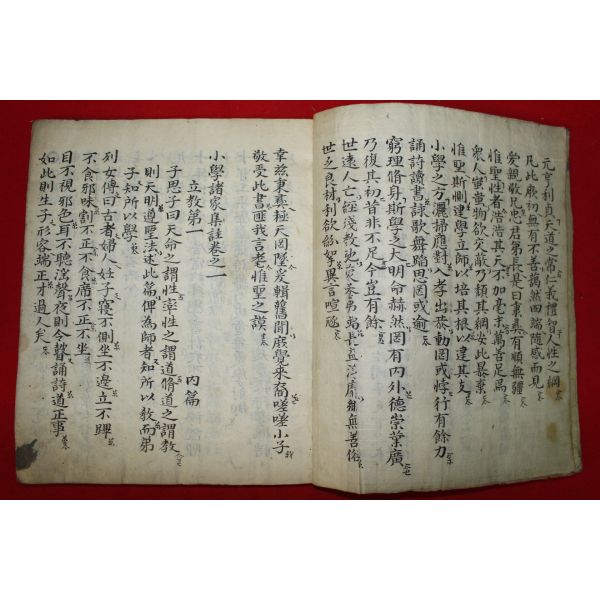 元亨利貞天道之常仁義禮智人性之綱
凡此厥初無有不善藹然四端隨感而見
愛親敬兄忠君弟長是曰秉彝有順無疆
惟聖性者浩浩其天不加毫末萬善足焉
衆人蚩蚩物欲交蔽乃頹其綱安此暴棄
惟聖斯惻建學立師以培其根以達其支
小學之方灑掃應對入孝出恭動罔或悖行有餘力
誦詩讀書詠歌舞蹈思罔或逾
窮理脩身斯學之大明命赫然罔有內外德崇業廣
乃復其初昔非不足今豈有餘
世遠人亡經殘教弛蒙養弗端長益浮靡鄕無善俗
世乏良材利欲紛挐異言喧豗
幸玆秉彝極天罔墜爰輯舊聞庶覺來裔嗟嗟小子
敬受此書匪我言耄惟聖之謨
小學諸家集註卷之一
立敎第一 內篇
子思子曰天命之謂性率性之謂道脩道之謂敎
則天明遵聖法述此篇俾爲師者知所以敎而弟
子知所以學
列女傳曰古者婦人姙子寢不側坐不邊立不蹕
不食邪味割不正不食席不正不坐
目不視邪色耳不聽淫聲夜則令瞽誦詩道正事
如此則生子形容端正才過人矣